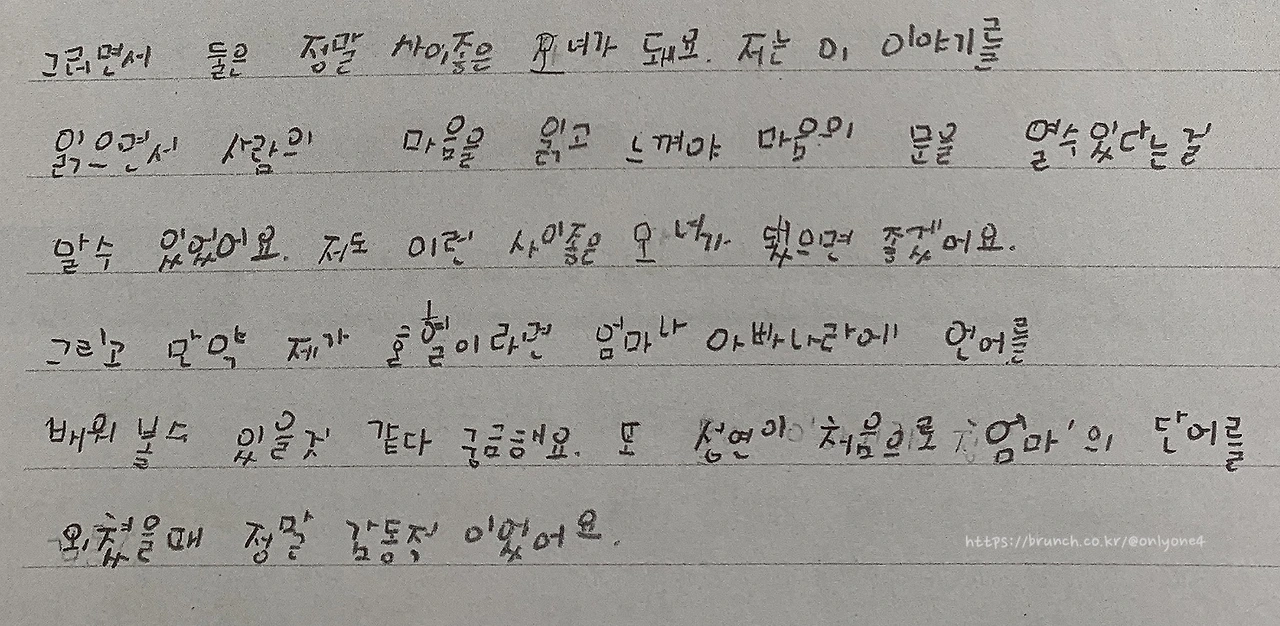 그러면서 둘은 정말 사이좋은 모녀가 돼요. 저는 이 이야기를
읽으면서 사람의 마음을 읽고 느껴야 마음의 문을 열수있다는걸
알수 있었어요. 저도 이런 사이좋은 모녀가 됐으면 좋겠어요.
그리고 만약 제가 혼혈이라면 엄마나 아빠나라에 언어를
배워볼수 있을것 같다 궁금해요. 또 성연이 처음으로 '엄마'의 단어를
외쳤을때 정말 감동적 이었어요.
https://brunch.co.kr/@onlyone4